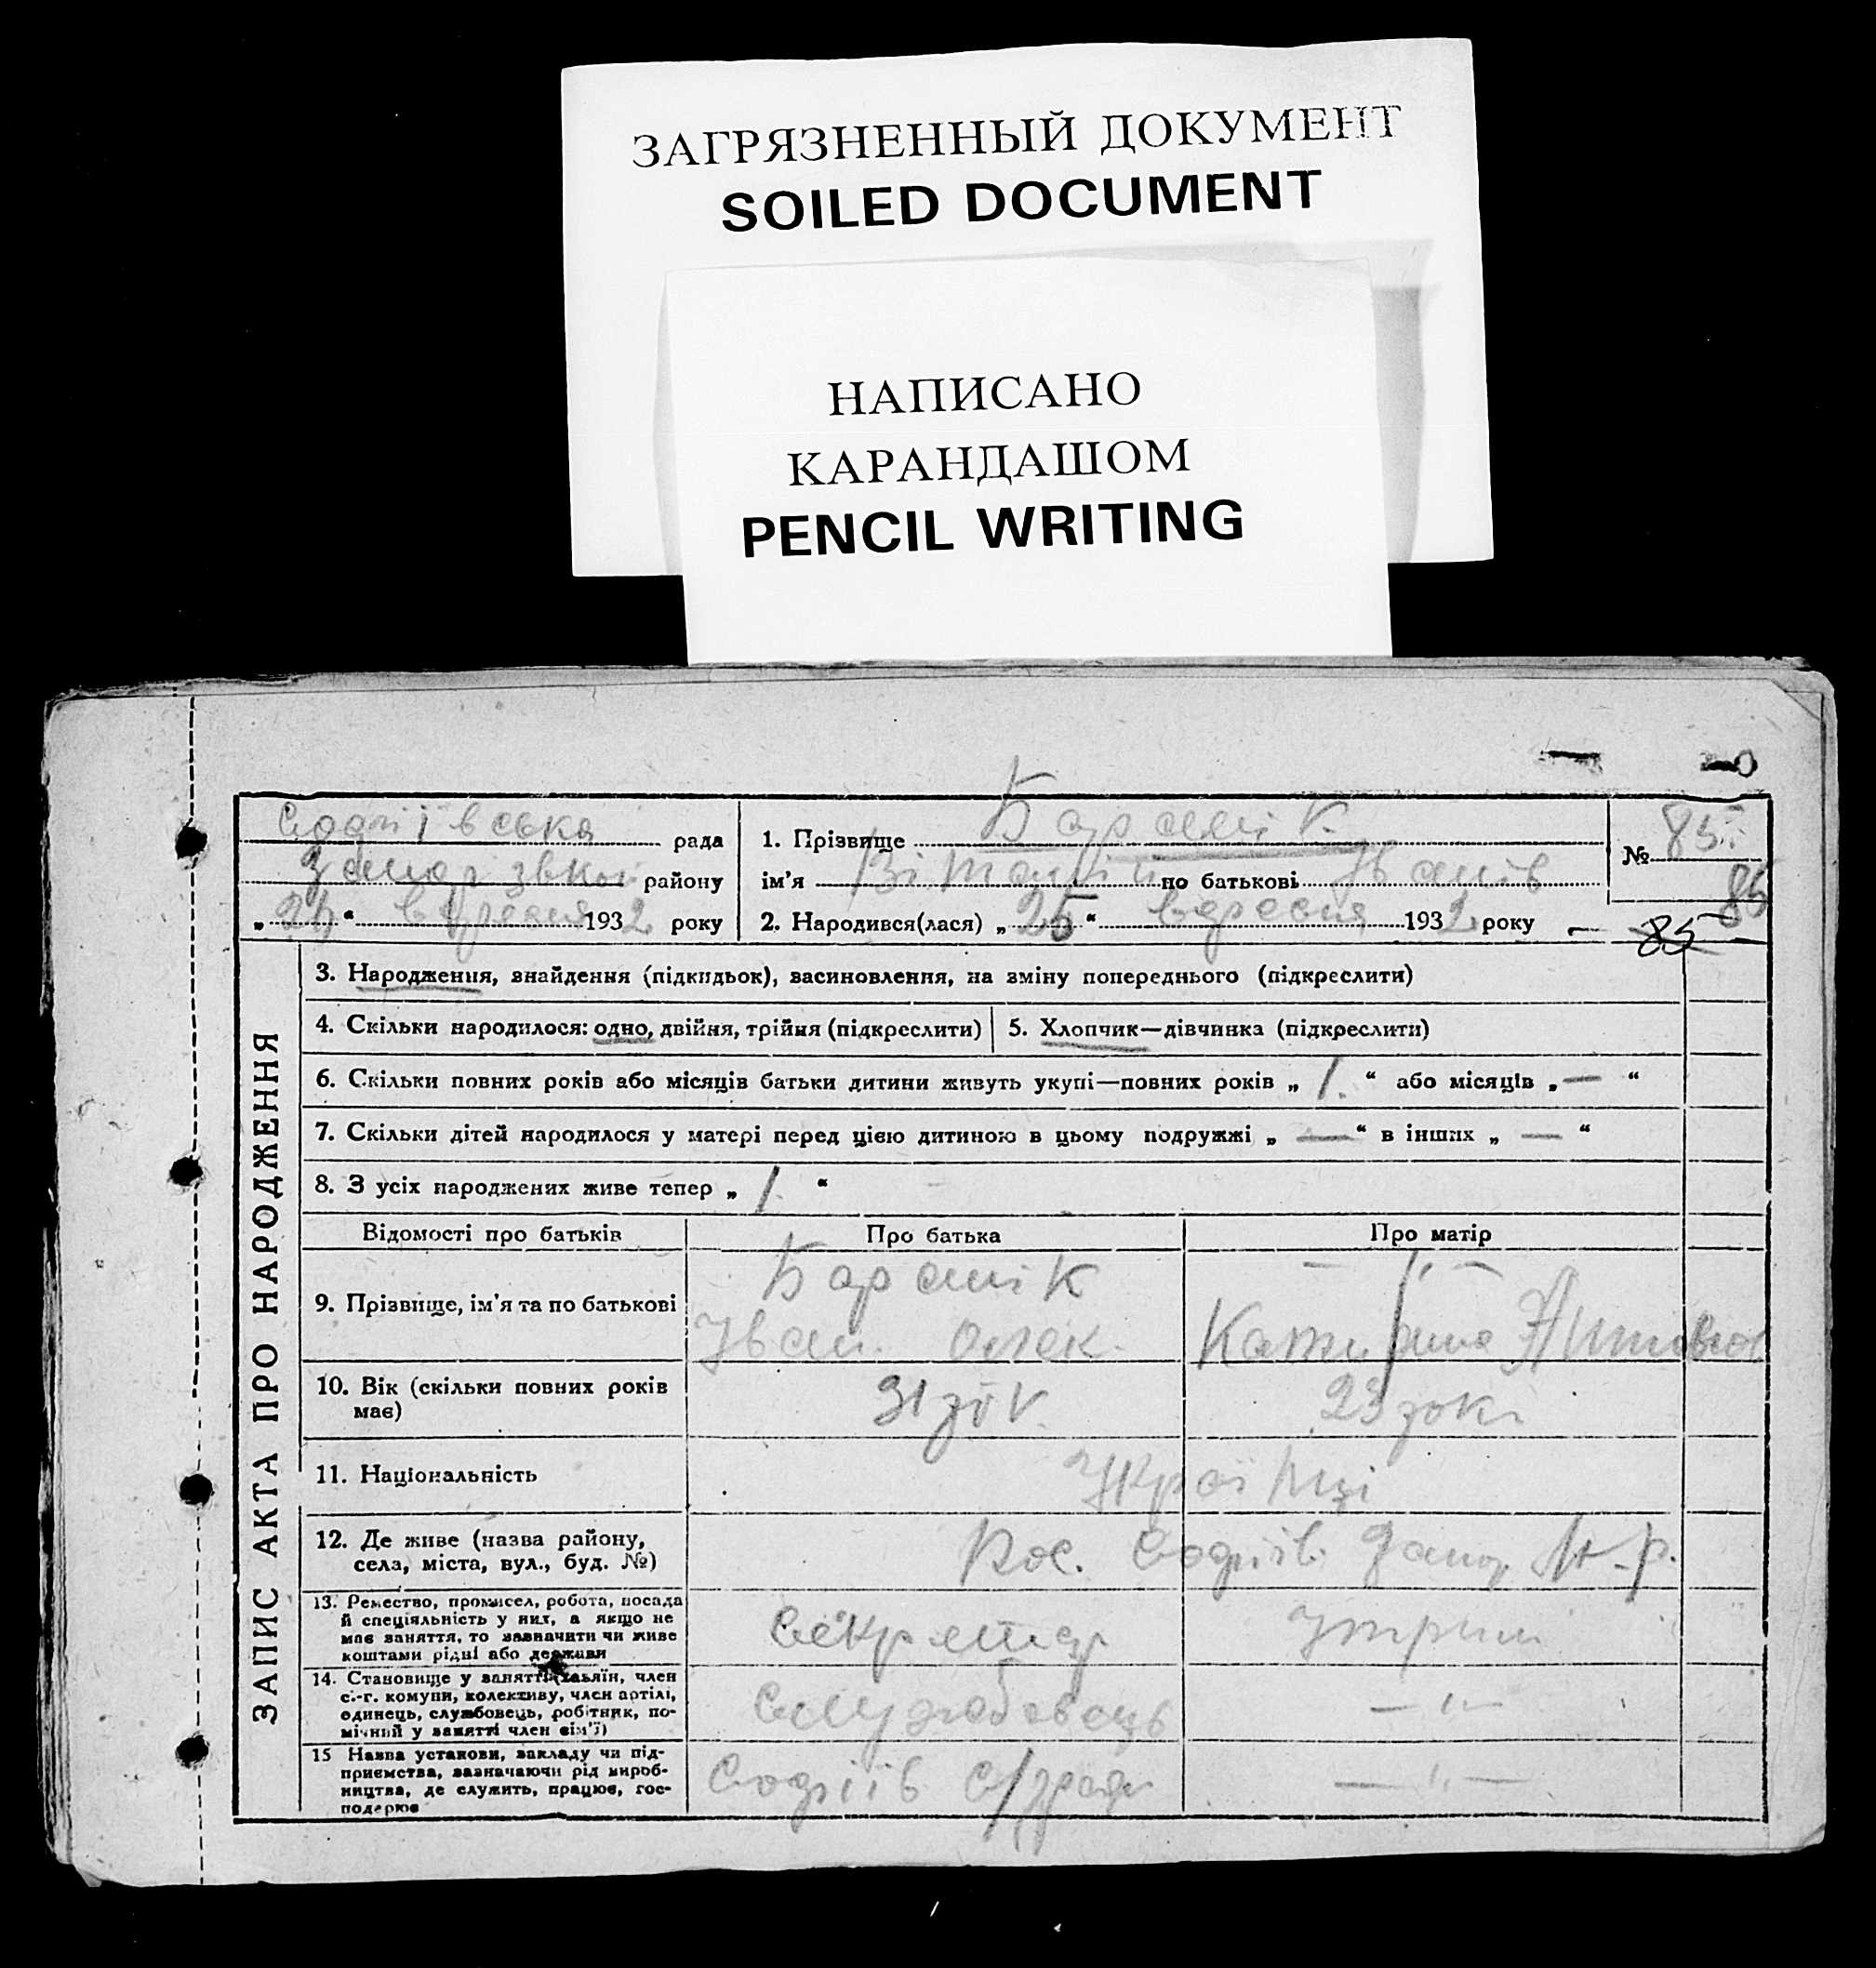 ЗАГРЯЗНЕННЫЙ ДОКУМЕНТ
SOILED DOCUMENT
НАПИСАНО
КАРАНДАШОМ
PENCIL WRITING
рада
району
1932 року
1. Прізвище
ім'я Віталій по батькові Іванів
2. Народився(лася) „25“ вересня 1932 року
№ 85
85
85
ЗАПИС АКТА ПРО НАРОДЖЕННЯ
3. Народження, знайдення (підкидьок), васиновлення, на зміну попереднього (підкреслити)
4. Скільки народилося: одно, двійня, трійня (підкреслити)
5. Хлопчик—дівчинка (підкреслити)
6. Скільки повних років або місяців батьки дитини живуть укупі—повних років „1.“ або місяців „—“
7. Скільки дітей народилося у матері перед цією дитиною в цьому подружжі „—“ в інших „—“
8. З усіх народжених живе тепер „1.“
Відомості про батьків
Про батька
Про матір
9. Прізвище, ім'я та по батькові
Іван Олек.
10. Вік (скільки повних років
має)
31 рік
23 роки
11. Національність
Українці
12. Де живе (назва району,
села, міста, вул., буд. №)
13. Ремество, промисел, робота, посада
й спеціяльність у них, а якщо не
має заняття, то зазначити чи живе
коштами рідні або держави
Секретар
Утрим
14. Становище у занятті (хазяїн, член
с.-г. комуни, колективу, член артілі,
одинець, службовець, робітник, по-
мічний у занятті член сім'ї)
Службовець
— " —
15 Назва установи, закладу чи під-
приємства, зазначаючи рід вироб-
ництва, де служить, працює, гос-
подарює
— " —